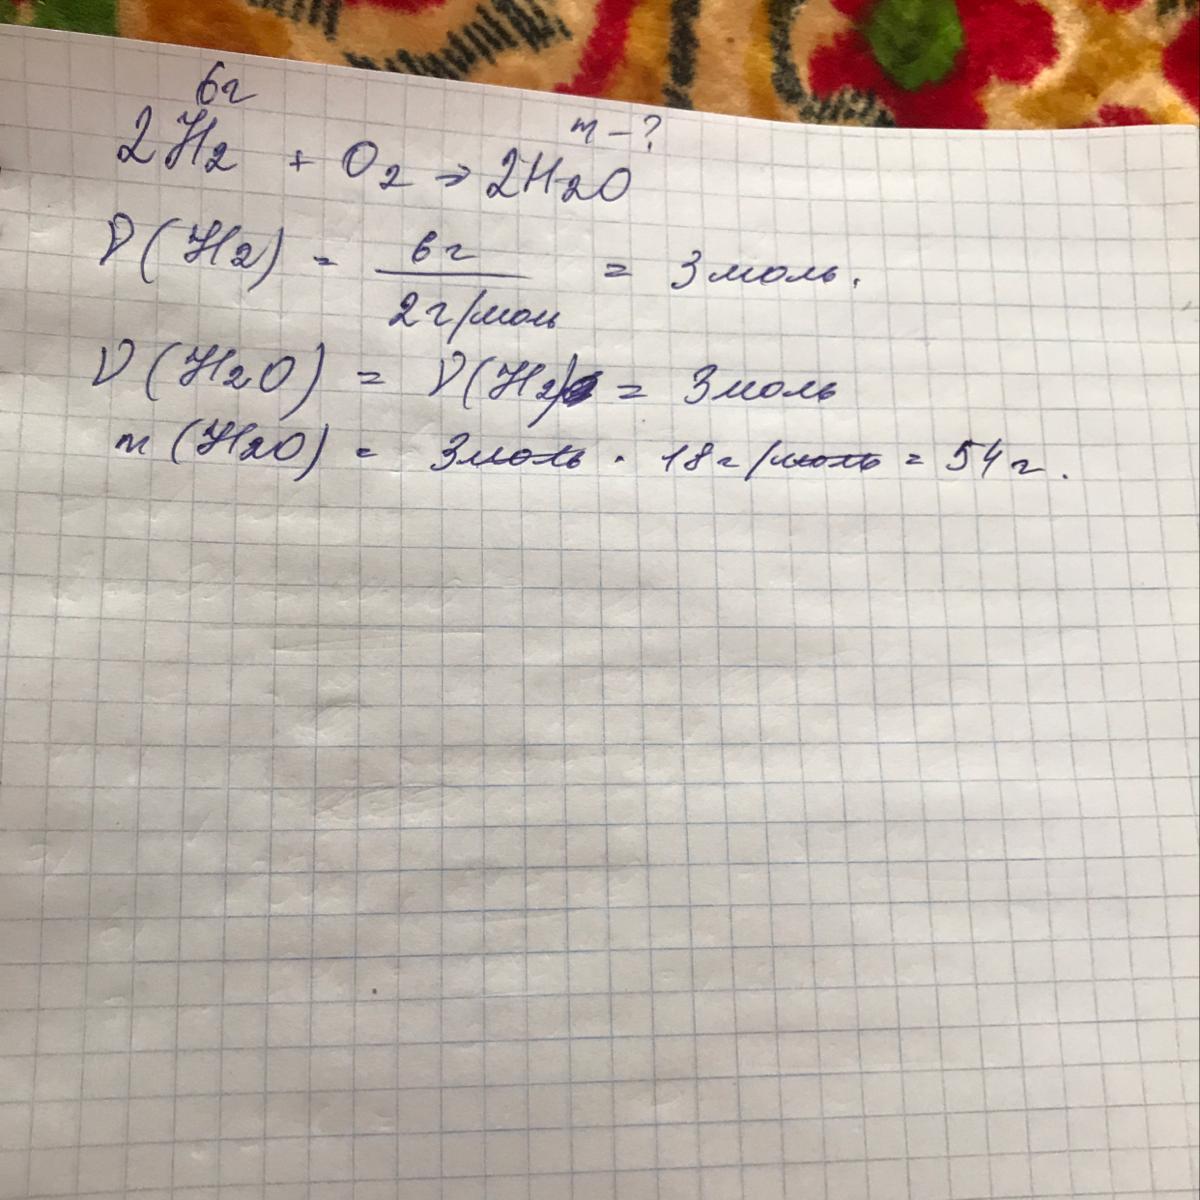 6г
m - ?
2H2 + O2 => 2H2O
ν(H2) = 6г / 2г/моль = 3 моль.
ν(H2O) = ν(H2) = 3 моль
m(H2O) = 3моль · 18г/моль = 54г.